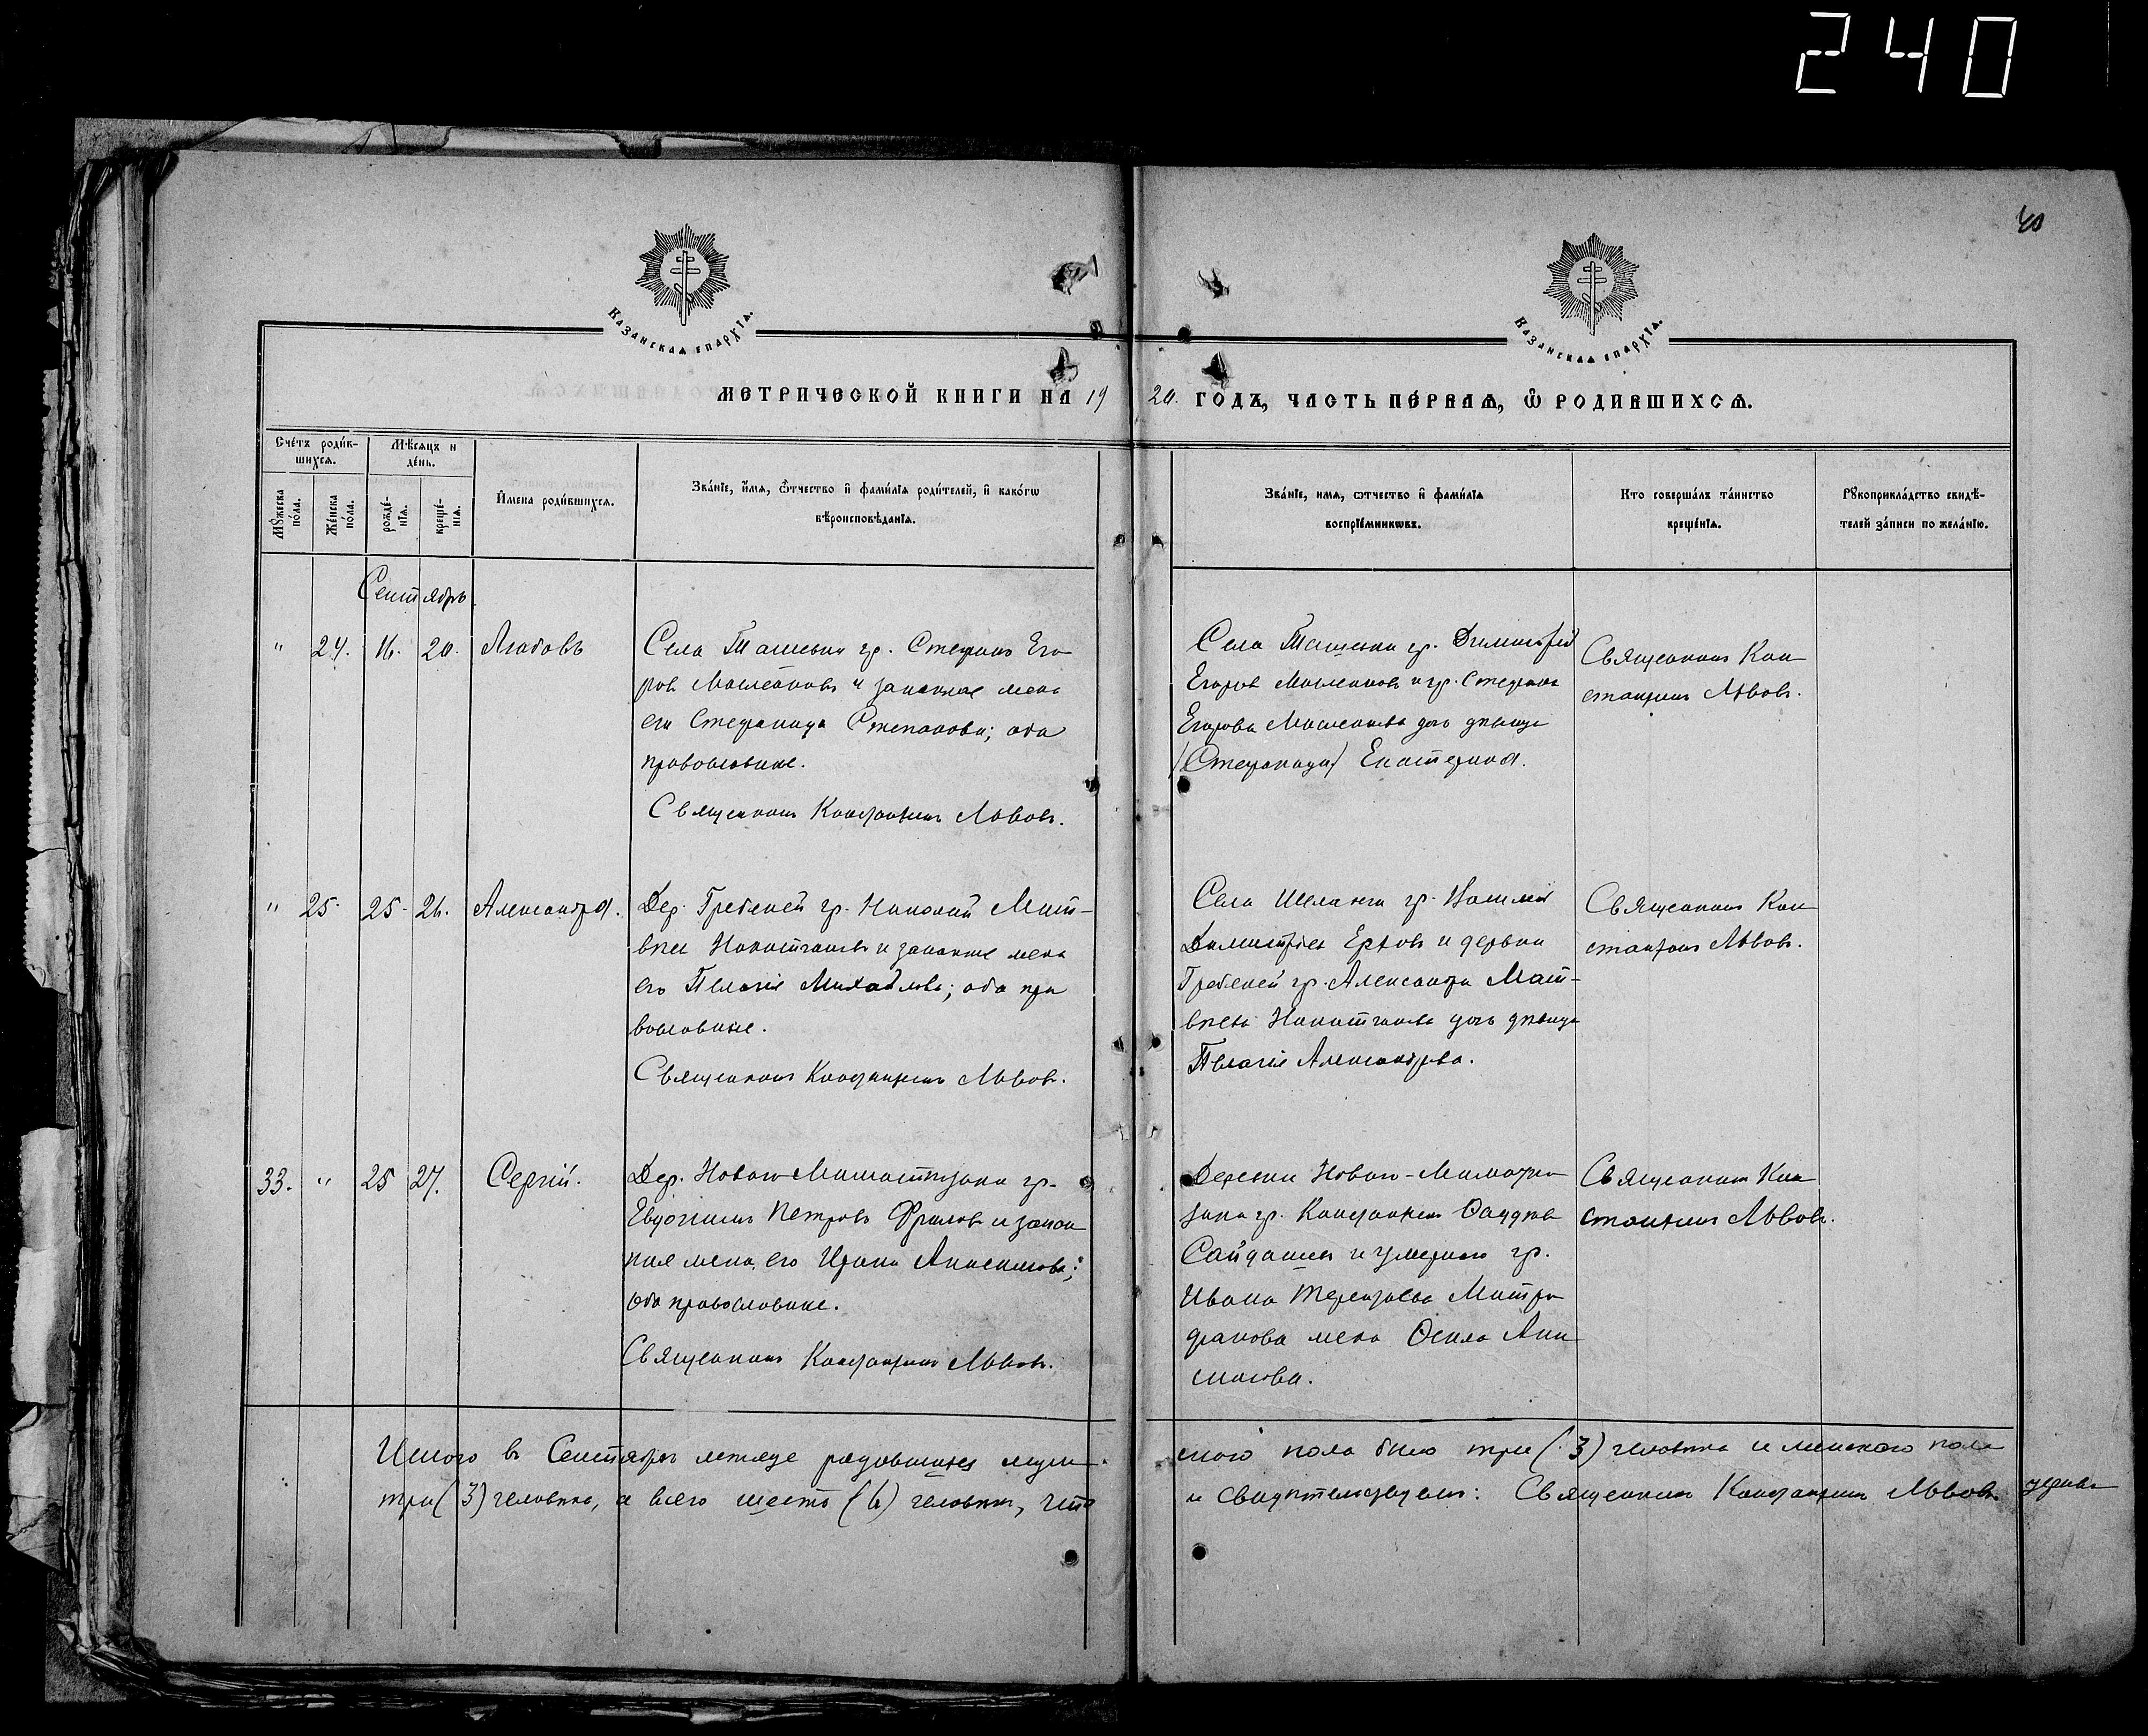 240
40
Казанская епархїѧ.
Казанская епархїѧ.
МЕТРИЧЕСКОЙ КНИГИ НА 19
20. ГОДЪ, ЧАСТЬ ПЕ́РВАѦ, Ѿ РОДИВШИХСѦ.
Сче́тъ роди́в-
шихсѧ.
Мѣ́сѧцъ и
де́нь.
Мꙋ́жеска
по́ла.
Же́нска
по́ла.
рожде́-
нїѧ.
креще́-
нїѧ.
И҆мена роди́вшихсѧ.
Зва́нїе, и҆́мѧ, ѻ҆́тчество и҆ фами́лїѧ роди́телей, и҆ како́гѡ
вѣроисповѣ́данїѧ.
Зва́нїе, имѧ, ѻтчество и҆ фами́лїѧ
воспрїе́мникѡвъ.
Кто соверша́лъ та́инство
креще́нїѧ.
Рꙋкоприкла́дство свидѣ́-
телей за́писи по жела́нїю.
Сентябрь
" 24. 16. 20. Любовь
Села Ташевки гр. Стефанъ Его
ровъ Масленовъ и законная жена
его Степанова; оба
православные.
Священникъ Константинъ Львовъ.
Села Ташевки гр. Димитрий
Егоровъ Масленовъ и гр. Стефана
Егорова Масленова дочь девица
(Стефанида) Екатерина.
Священникъ Кон
стантинъ Львовъ.
" 25. 25. 26. Александра.
Дер. Гребеней гр. Николай Мат-
вѣевъ и законная жена
его Пелагія Михайлова; оба пра
вославные.
Священникъ Константинъ Львовъ.
Села Шеланги гр. Василій
Димитріевъ Ершовъ и деревни
Гребеней гр. Александра Мат-
вѣева дочь дѣвица
Пелагія Александрова.
Священникъ Кон
стантинъ Львовъ.
33. " 25 27. Сергій.
Дер. Новаго-Маматкозина гр.
Евдокимъ Петровъ Фроловъ и закон
ная жена его Ирина Анисимова;
оба православные.
Священникъ Константинъ Львовъ.
Деревни Новаго-Мамотко
зина гр. Константинъ
Сайдашевъ и умершаго гр.
Ивана Терентьева Митро
фанова жена Анисимова.
Священникъ Кон
стантинъ Львовъ.
Итого въ Сентябрѣ месяце родившихся муж-
ского пола было три (3) человѣка и женскаго пола
три (3) человѣка, а всего шесть (6) человѣкъ, что
и свидѣтельствуемъ: Священникъ Константинъ Львовъ.